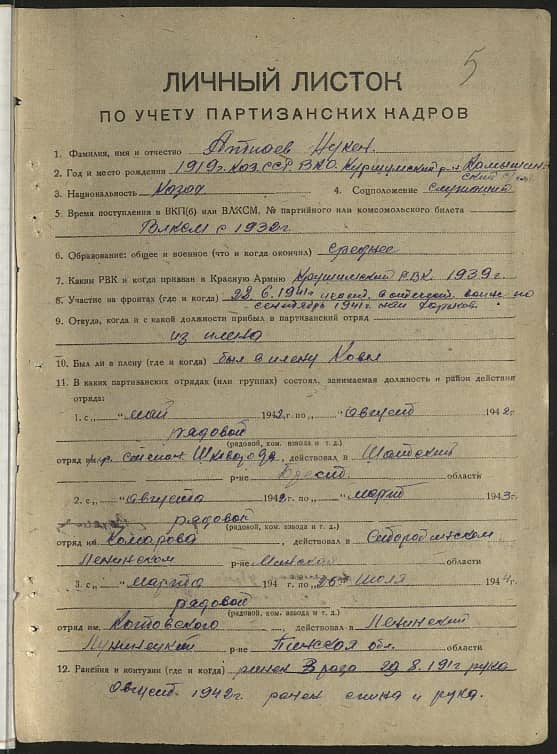 5
ЛИЧНЫЙ ЛИСТОК
ПО УЧЕТУ ПАРТИЗАНСКИХ КАДРОВ
1. Фамилия, имя и отчество Нукен
2. Год и место рождения 1919г. Каз. ССР. В.К.О. Куршумский р-н
3. Национальность Казах 4. Соцположение Служащий
5. Время поступления в ВКП(б) или ВЛКСМ, № партийного или комсомольского билета
ВЛКСМ с 1932г
6. Образование: общее и военное (что и когда окончил) Среднее
7. Каким РВК и когда призван в Красную Армию РВК. 1939г.
8. Участие на фронтах (где и когда) 22.6.1941г. по
сентябрь 1941г.
9. Откуда, когда и с какой должности прибыл в партизанский отряд
из плена
10. Был ли в плену (где и когда) был в плену
11. В каких партизанских отрядах (или группах) состоял, занимаемая должность и район действия
отряда:
1. с „ “ май 1942 г. по „ “ август 1942г.
рядовой
(рядовой, ком. взвода и т. д.)
отряд , действовал в Шатский
р-не Брест. области
2. с „ “ августа 1942 г. по „ “ март 1943г.
рядовой
(рядовой, ком. взвода и т. д.)
отряд им Комарова , действовал в
Ленинском р-не Минской области
3. с „ “ марта 194 г. по „26“ июля 1944г.
рядовой
(рядовой, ком. взвода и т. д.)
отряд им. Котовского действовал в Ленинский
Лунинецкий р-не Пинская обл. области
12. Ранения и контузии (где и когда) ранен 3 рода рука
Август 1942г. ранен спина и рука.